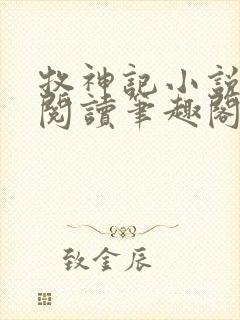 牧神記小說
閱讀筆趣閣
致金辰